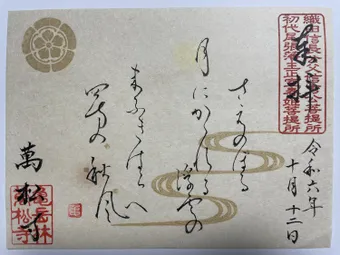 織田信長公父信秀公菩提所
初代尾張藩主正室春姫菩提所
奉拝
令和六年
十月十二日
さえのぼる
月にかかれる浮雲の
末ふきはらへ
四方の秋風
萬松寺
亀岳林
萬松寺